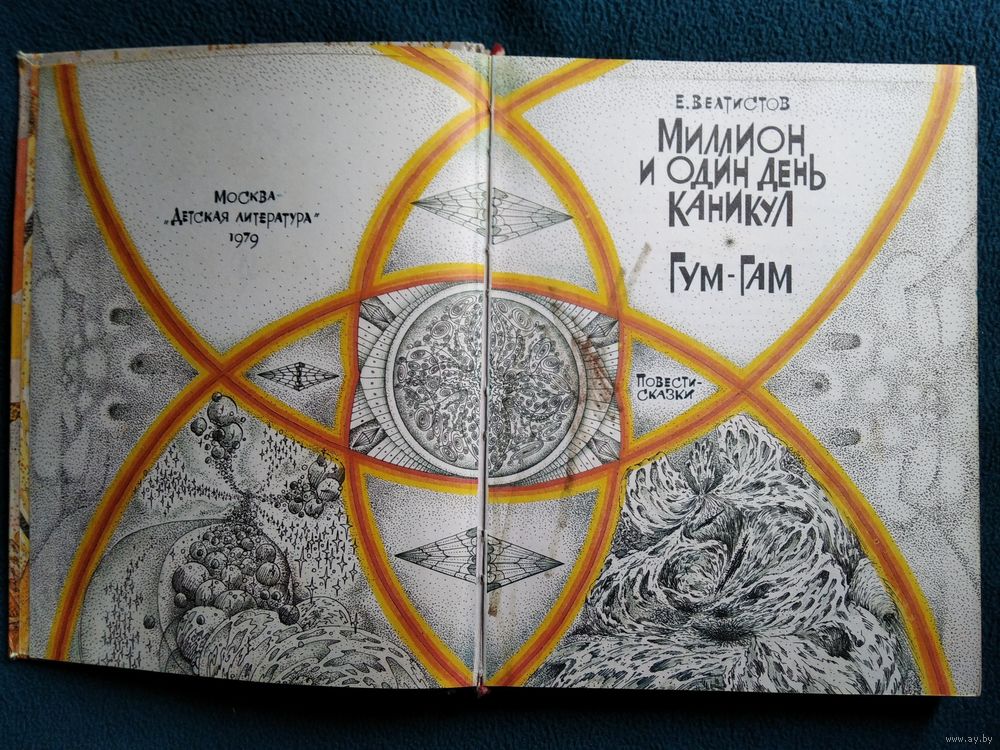 Москва-
„Детская литература"
1979
Е. Велтистов
Миллион
и один день
каникул
Гум-Гам
Повести-
сказки
www.ay.by